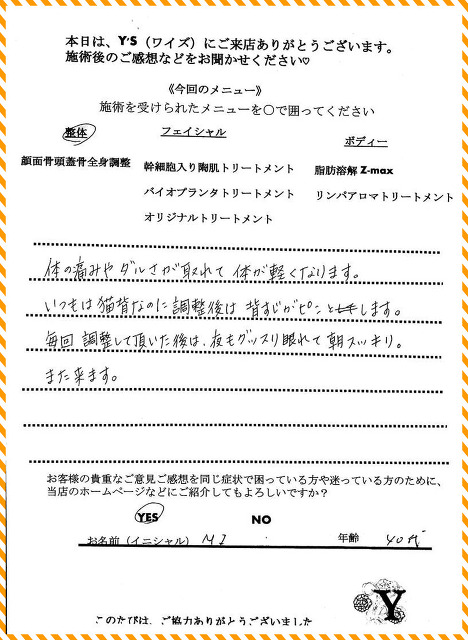 本日は、Y'S（ワイズ）にご来店ありがとうございます。
施術後のご感想などをお聞かせください♡
《今回のメニュー》
施術を受けられたメニューを〇で囲ってください
整体
フェイシャル
ボディー
顔面骨頭蓋骨全身調整
幹細胞入り陶肌トリートメント
脂肪溶解 Z-max
バイオプランタトリートメント
リンパアロマトリートメント
オリジナルトリートメント
体の痛みやダルさが取れて体が軽くなります。
いつもは猫背なのに調整後は背すじがピンとします。
毎回調整して頂いた後は、夜もグッスリ眠れて朝スッキリ。
また来ます。
お客様の貴重なご意見ご感想を同じ症状で困っている方や迷っている方のために、
当店のホームページなどにご紹介してもよろしいですか？
YES NO
お名前（イニシャル） M I 年齢 40代
Y
このたびは、ご協力ありがとうございました